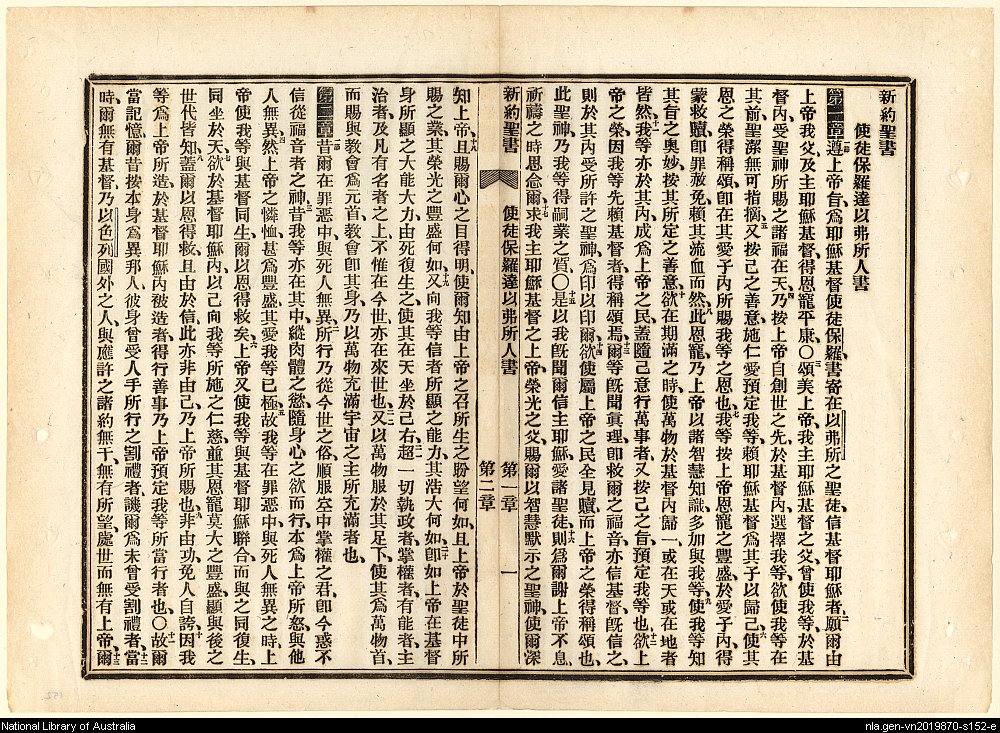 新約聖書
使徒保羅達以弗所人書
第一章遵上帝旨爲耶穌基督使徒保羅書寄在以弗所之聖徒信基督耶穌者願爾由
上帝我父及主耶穌基督得恩寵平康〇頌美上帝我主耶穌基督之父曾使我等於基
督內受聖神所賜之諸福在天乃按上帝自創世之先於基督內選擇我等欲使我等在
其前聖潔無可指摘又按己之善意施仁愛預定我等賴耶穌基督爲其子以歸己使其
恩之榮得稱頌卽在其愛子內所賜我等之恩也我等按上帝恩寵之豐盛於愛子內得
蒙救贖卽罪赦免賴其流血而然此恩寵乃上帝以諸智慧知識多加與我等使我等知
其旨之奧妙按其所定之善意欲在期滿之時使萬物於基督內歸一或在天或在地者
皆然我等亦於其內成爲上帝之民蓋隨己意行萬事者又按己之旨預定我等也欲上
帝之榮因我等先賴基督者得稱頌焉爾等旣聞眞理卽救爾之福音亦信基督旣信之
則於其內受所許之聖神爲印以印爾欲使屬上帝之民全見贖而上帝之榮得稱頌也
此聖神乃我等得嗣業之質〇是以我旣聞爾信主耶穌愛諸聖徒則爲爾謝上帝不息
祈禱之時思念爾求我主耶穌基督之上帝榮光之父賜爾以智慧默示之聖神使爾深
新約聖書 使徒保羅達以弗所人書 第一章 第二章 一
知上帝且賜爾心之目得明使爾知由上帝之召所生之盼望何如且上帝於聖徒中所
賜之業其榮光之豐盛何如又向我等信者所顯之能力其浩大何如卽如上帝在基督
身所顯之大能大力由死復生之使其在天坐於己右超一切執政者掌權者有能者主
治者及凡有名者之上不惟在今世亦在來世也又以萬物服於其足下使其爲萬物首
而賜與教會爲元首教會卽其身乃以萬物充滿宇宙之主所充滿者也
第二章昔爾在罪惡中與死人無異所行乃從今世之俗順服空中掌權之君卽今惑不
信從福音者之神昔我等亦在其中縱肉體之慾隨身心之欲而行本爲上帝所怒與他
人無異然上帝之憐恤甚爲豐盛其愛我等已極故我等在罪惡中與死人無異之時上
帝使我等與基督同生爾以恩得救矣上帝又使我等與基督耶穌聯合而與之同復生
同坐於天欲於基督耶穌內以己向我等所施之仁慈並其恩寵莫大之豐盛顯與後之
世代皆知蓋爾以恩得救且由於信此亦非由己乃上帝所賜也非由功免人自誇因我
等爲上帝所造於基督耶穌內被造者得行善事乃上帝預定我等所當行者也〇故爾
當記憶爾昔按本身爲異邦人彼身曾受人手所行之割禮者譏爾爲未曾受割禮者當
時爾無有基督乃以色列國外之人與應許之諸約無干無有所望處世而無有上帝爾
National Library of Australia
nla.gen-vn2019870-s152-e